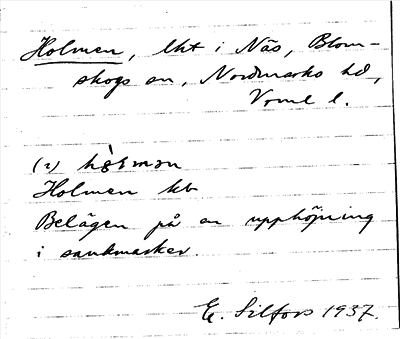 Holmen, lht i Näs, Blom-
skogs sn, Nordmarks hd,
Vrml l.
(2) hòlmən
Holmen kb
Belägen på en upphöjning
i sankmarker.
E. Silfors 1937.